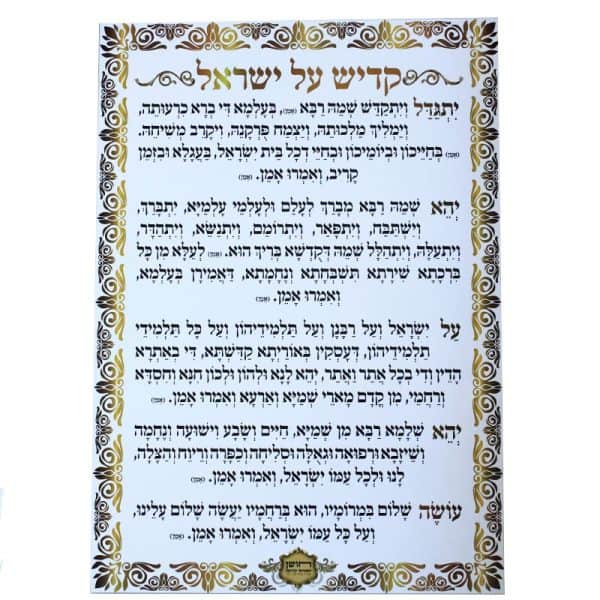 קדיש על ישראל
יִתְגַּדַּל וְיִתְקַדַּשׁ שְׁמֵהּ רַבָּא (אמן), בְּעָלְמָא דִּי בְרָא כִרְעוּתֵהּ,
וְיַמְלִיךְ מַלְכוּתֵהּ, וְיַצְמַח פֻּרְקָנֵהּ, וִיקָרֵב מְשִׁיחֵהּ.
(אמן) בְּחַיֵּיכוֹן וּבְיוֹמֵיכוֹן וּבְחַיֵּי דְכָל בֵּית יִשְׂרָאֵל, בַּעֲגָלָא וּבִזְמַן
קָרִיב, וְאִמְרוּ אָמֵן. (אמן)
יְהֵא שְׁמֵהּ רַבָּא מְבָרַךְ לְעָלַם וּלְעָלְמֵי עָלְמַיָּא, יִתְבָּרַךְ,
וְיִשְׁתַּבַּח, וְיִתְפָּאַר, וְיִתְרוֹמַם, וְיִתְנַשֵּׂא, וְיִתְהַדָּר,
וְיִתְעַלֶּה, וְיִתְהַלָּל שְׁמֵהּ דְּקֻדְשָׁא בְּרִיךְ הוּא. (אמן) לְעֵלָּא מִן כָּל
בִּרְכָתָא שִׁירָתָא תֻּשְׁבְּחָתָא וְנֶחָמָתָא, דַּאֲמִירָן בְּעָלְמָא,
וְאִמְרוּ אָמֵן. (אמן)
עַל יִשְׂרָאֵל וְעַל רַבָּנָן וְעַל תַּלְמִידֵיהוֹן וְעַל כָּל תַּלְמִידֵי
תַלְמִידֵיהוֹן, דְּעָסְקִין בְּאוֹרַיְתָא קַדִּשְׁתָּא, דִּי בְאַתְרָא
הָדֵין וְדִי בְכָל אֲתַר וַאֲתַר, יְהֵא לָנָא וּלְהוֹן וּלְכוֹן חִנָּא וְחִסְדָּא
וְרַחֲמֵי, מִן קֳדָם מָארֵי שְׁמַיָּא וְאַרְעָא וְאִמְרוּ אָמֵן. (אמן)
יְהֵא שְׁלָמָא רַבָּא מִן שְׁמַיָּא, חַיִּים וְשָׂבָע וִישׁוּעָה וְנֶחָמָה
וְשֵׁיזָבָא וּרְפוּאָה וּגְאֻלָּה וּסְלִיחָה וְכַפָּרָה וְרֵיוַח וְהַצָּלָה,
לָנוּ וּלְכָל עַמּוֹ יִשְׂרָאֵל, וְאִמְרוּ אָמֵן. (אמן)
עוֹשֶׂה שָׁלוֹם בִּמְרוֹמָיו, הוּא בְּרַחֲמָיו יַעֲשֶׂה שָׁלוֹם עָלֵינוּ,
וְעַל כָּל עַמּוֹ יִשְׂרָאֵל, וְאִמְרוּ אָמֵן. (אמן)